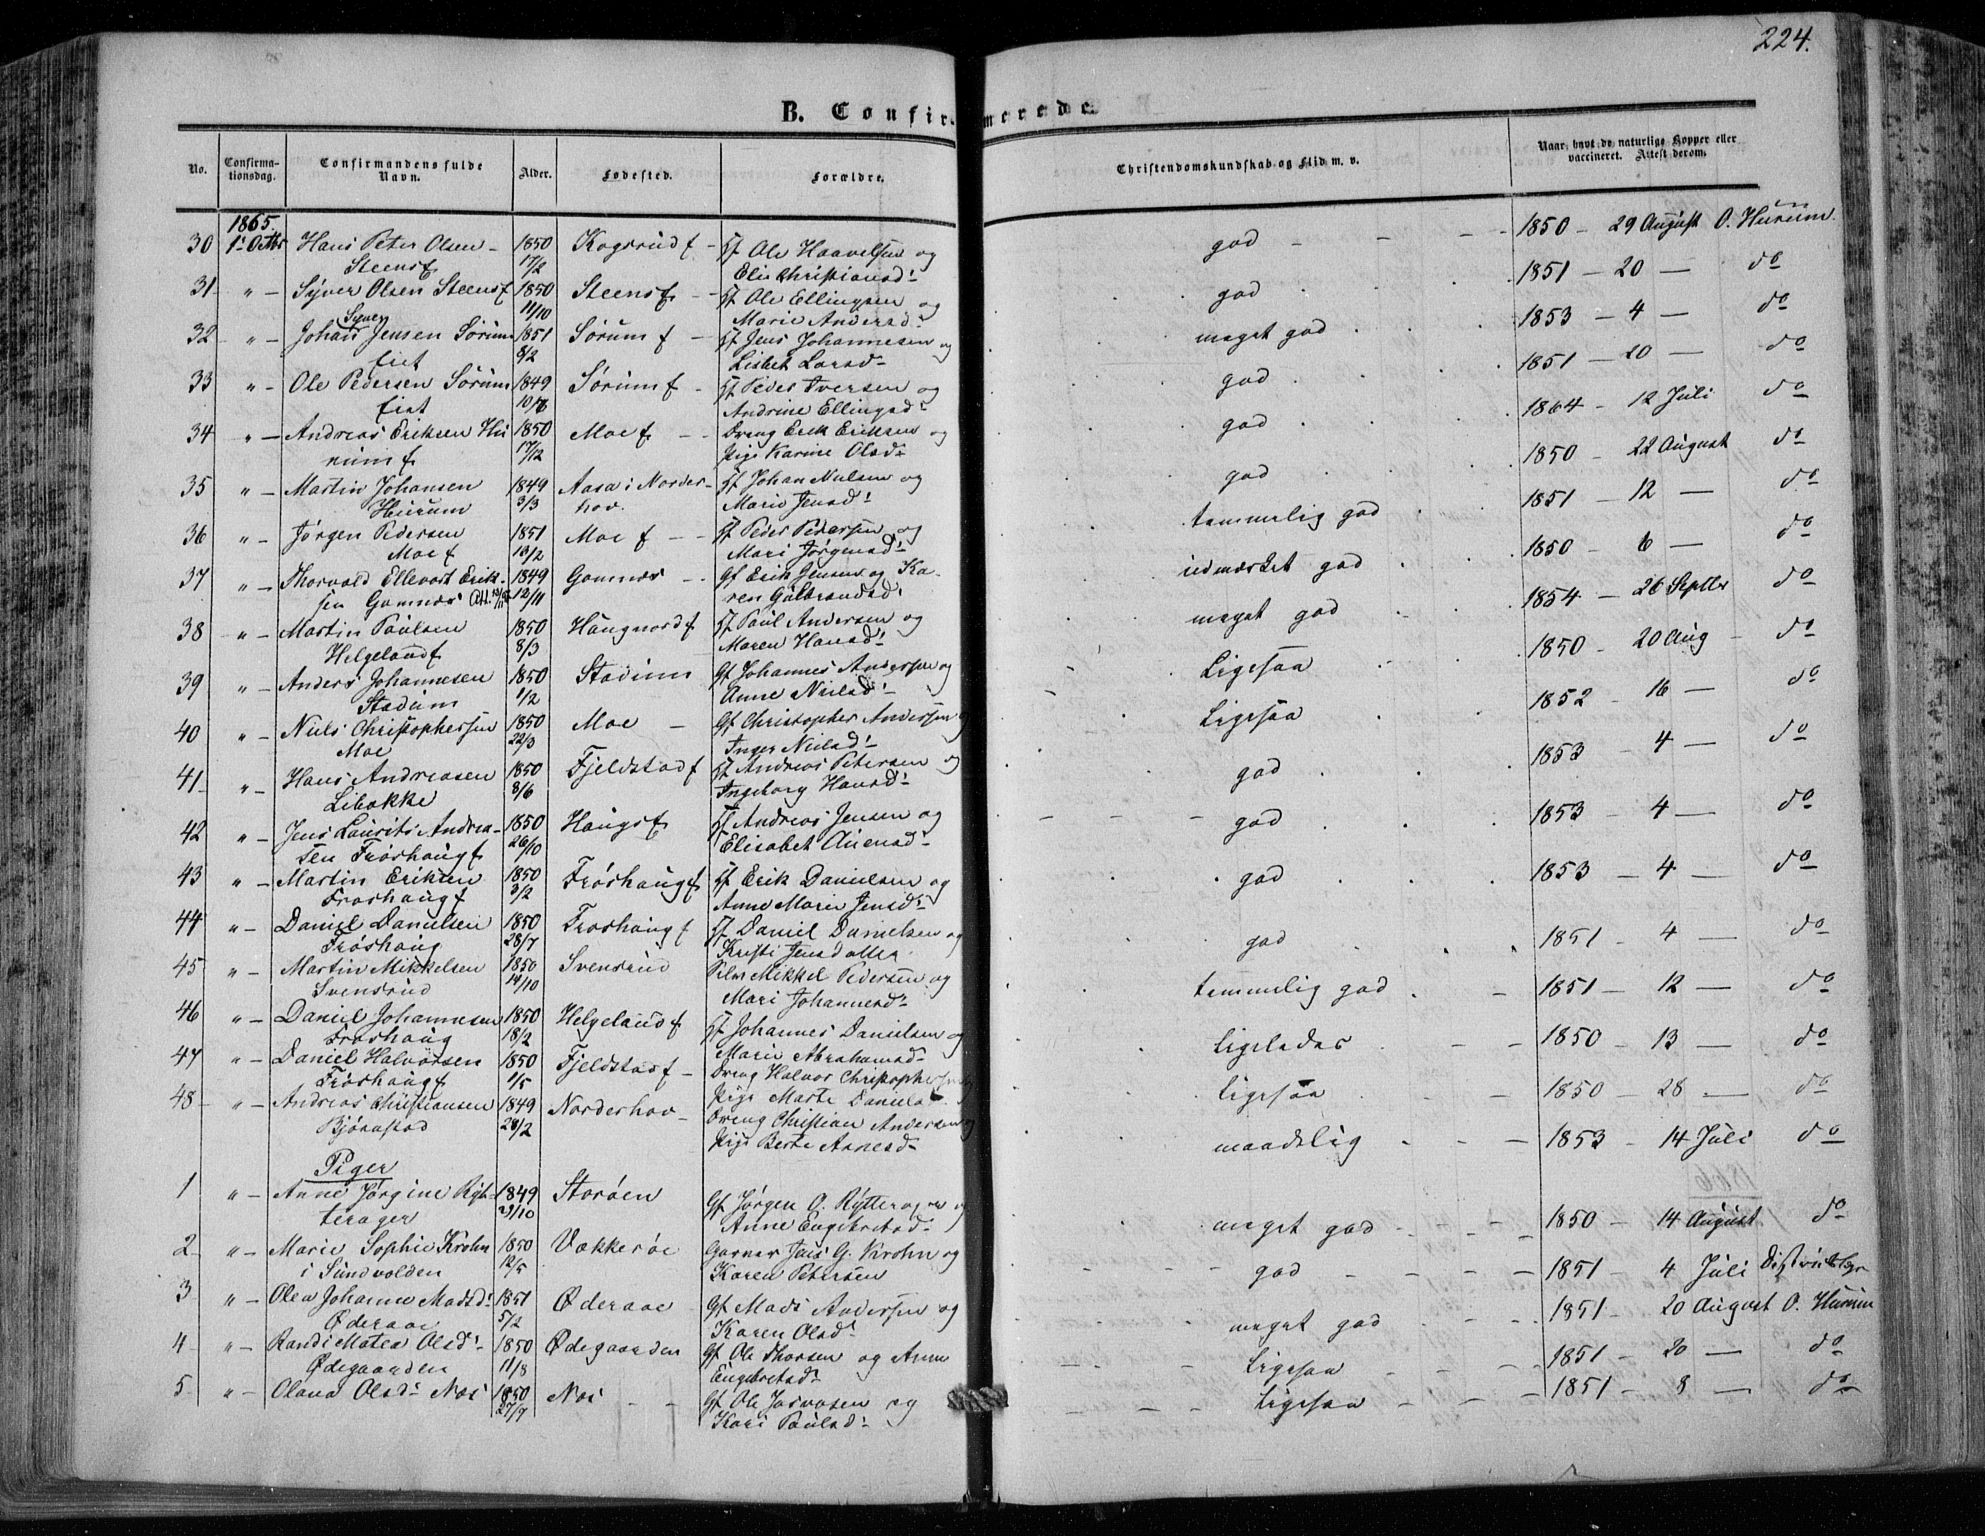 224.
B. Confirmerede
No.
Confirma-
tionsdag.
Confirmandens fulde
Navn.
Alder.
Fødested.
Forældre.
Christendomskundskab og Flid m. v.
Naar havt de naturlige Kopper eller
vaccineret. Attest derom.
1865.
30 1ste Octbr Hans Peter Olsen 1850 Kogsrud f Hf Ole Haavelsen og god 1850 - 29 August O. Hurum.
Steens f 17/2 Elie Christiansd:
31 " Syver Olsen Steens f 1850 Steens f Hf Ole Ellingsen og god 1851 - 20 — do
11/10 Marie Andersd:
Syver
32 " Johan Jensen Sørum 1851 Sørum f Hf Jens Johannesen og meget god 1853 - 4 — do
eiet 8/2 Lisbet Larsd:
33 " Ole Pedersen Sørum 1849 Sørum f Hf Peder Iversen og god 1851 - 20 — do
eiet Andrine Ellingsd:
34 " Andreas Eriksen Hu 1850 Moe f Dreng Erik Eriksen og god 1864 - 12 Juli do
rum f 17/12 Pige Karine Olsd:
35 " Martin Johansen 1849 Aasa i Norder- Hf Johan Nielsen og god 1850 - 22 August do
Hurum 3/3 hov. Marie Jensd:
36 " Jørgen Pedersen 1851 Moe f Hf Peder Pedersen og temmelig god 1851 - 12 — do
Moe f 13/2 Mari Jørgensd:
37 " Thorvald Ellevart Erik- 1849 Gomnæs Gf Erik Jensen og Ka- udmærket god 1850 - 6 — do
sen Gomnæs 12/11 ren Gulbrandsd:
38 " Martin Paulsen 1850 Haugnord f Hf Paul Andersen og meget god 1854 - 26 Septbr do
Helgeland f 8/3 Maren Hansd:
39 " Anders Johannesen 1850 Stadum Gf Johannes Andersen og Ligesaa 1850 - 20 Aug do
Stadum 1/2 Anne Nielsd:
40 " Niels Christophersen 1850 Moe Gf Christopher Andersen Ligesaa 1852 - 16 — do
Moe 22/3 Inger Nielsd:
41 " Hans Andreasen 1850 Fjeldstad f Hf Andreas Petersen og god 1853 - 4 — do
Libakke 8/6 Ingeborg Hansd:
42 " Jens Laurits Andrea- 1850 Haugs f Hf Andreas Jensen og god 1853 - 4 — do
sen Frøshaug f 26/10 Elisabet Auensd:
43 " Martin Eriksen 1850 Frøshaug f Hf Erik Danielsen og god 1853 - 4 — do
Frøshaug f 3/2 Anne Marie Jensd:
44 " Daniel Danielsen 1850 Frøshaug f Hf Daniel Danielsen og god 1851 - 4 — do
Frøshaug 28/7 Kristi Jensdatter
45 " Martin Mikkelsen 1850 Svensrud Mikkel Pedersen og temmelig god 1851 - 12 — do
Svensrud 14/10 Mari Johannesd:
46 " Daniel Johannesen 1850 Helgeland f Hf Johannes Danielsen og Ligeledes 1850 - 13 — do
Frøshaug 18/2 Marie Abrahamsd:
47 " Daniel Halvorsen 1850 Fjeldstad f Dreng Halvor Christophersen Ligesaa 1850 - 28 — do
Frøshaug f 1/5 Pige Marte Danielsd
48 " Andreas Christiansen 1849 Norderhov Dreng Christian Andersen og maadelig 1853 - 14 Juli do
Bjørnstad 28/2 Pige Berte Arnesd:
Piger
1 " Anne Jørgine Ryt- 1849 Storøen Gf Jørgen O. Rytterager og meget god 1850 - 14 August do
terager 29/10 Anne Engebretsd:
2 " Marie Sophie Krohn 1850 Vækkerøe Garver Jens G. Krohn og god 1851 - 4 Juli
i Sundvolden 12/5 Karen Petersen
3 " Olea Johanne Madsd: 1851 Øderaae Gf Mads Andersen og meget god 1851 - 20 August O. Hurum
Øderaae 5/2 Karen Olsd:
4 " Randi Matea Olsd: 1850 Ødegaarden Gf Ole Thorsen og Anne Ligesaa 1851 - 20 — do
Ødegaarden 11/8 Engebretsd:
5 " Olava Olsd: Næs 1850 Næs Gf Ole Jonasen og Ligesaa 1851 - 8 — do
27/9 Kari Paulsd: